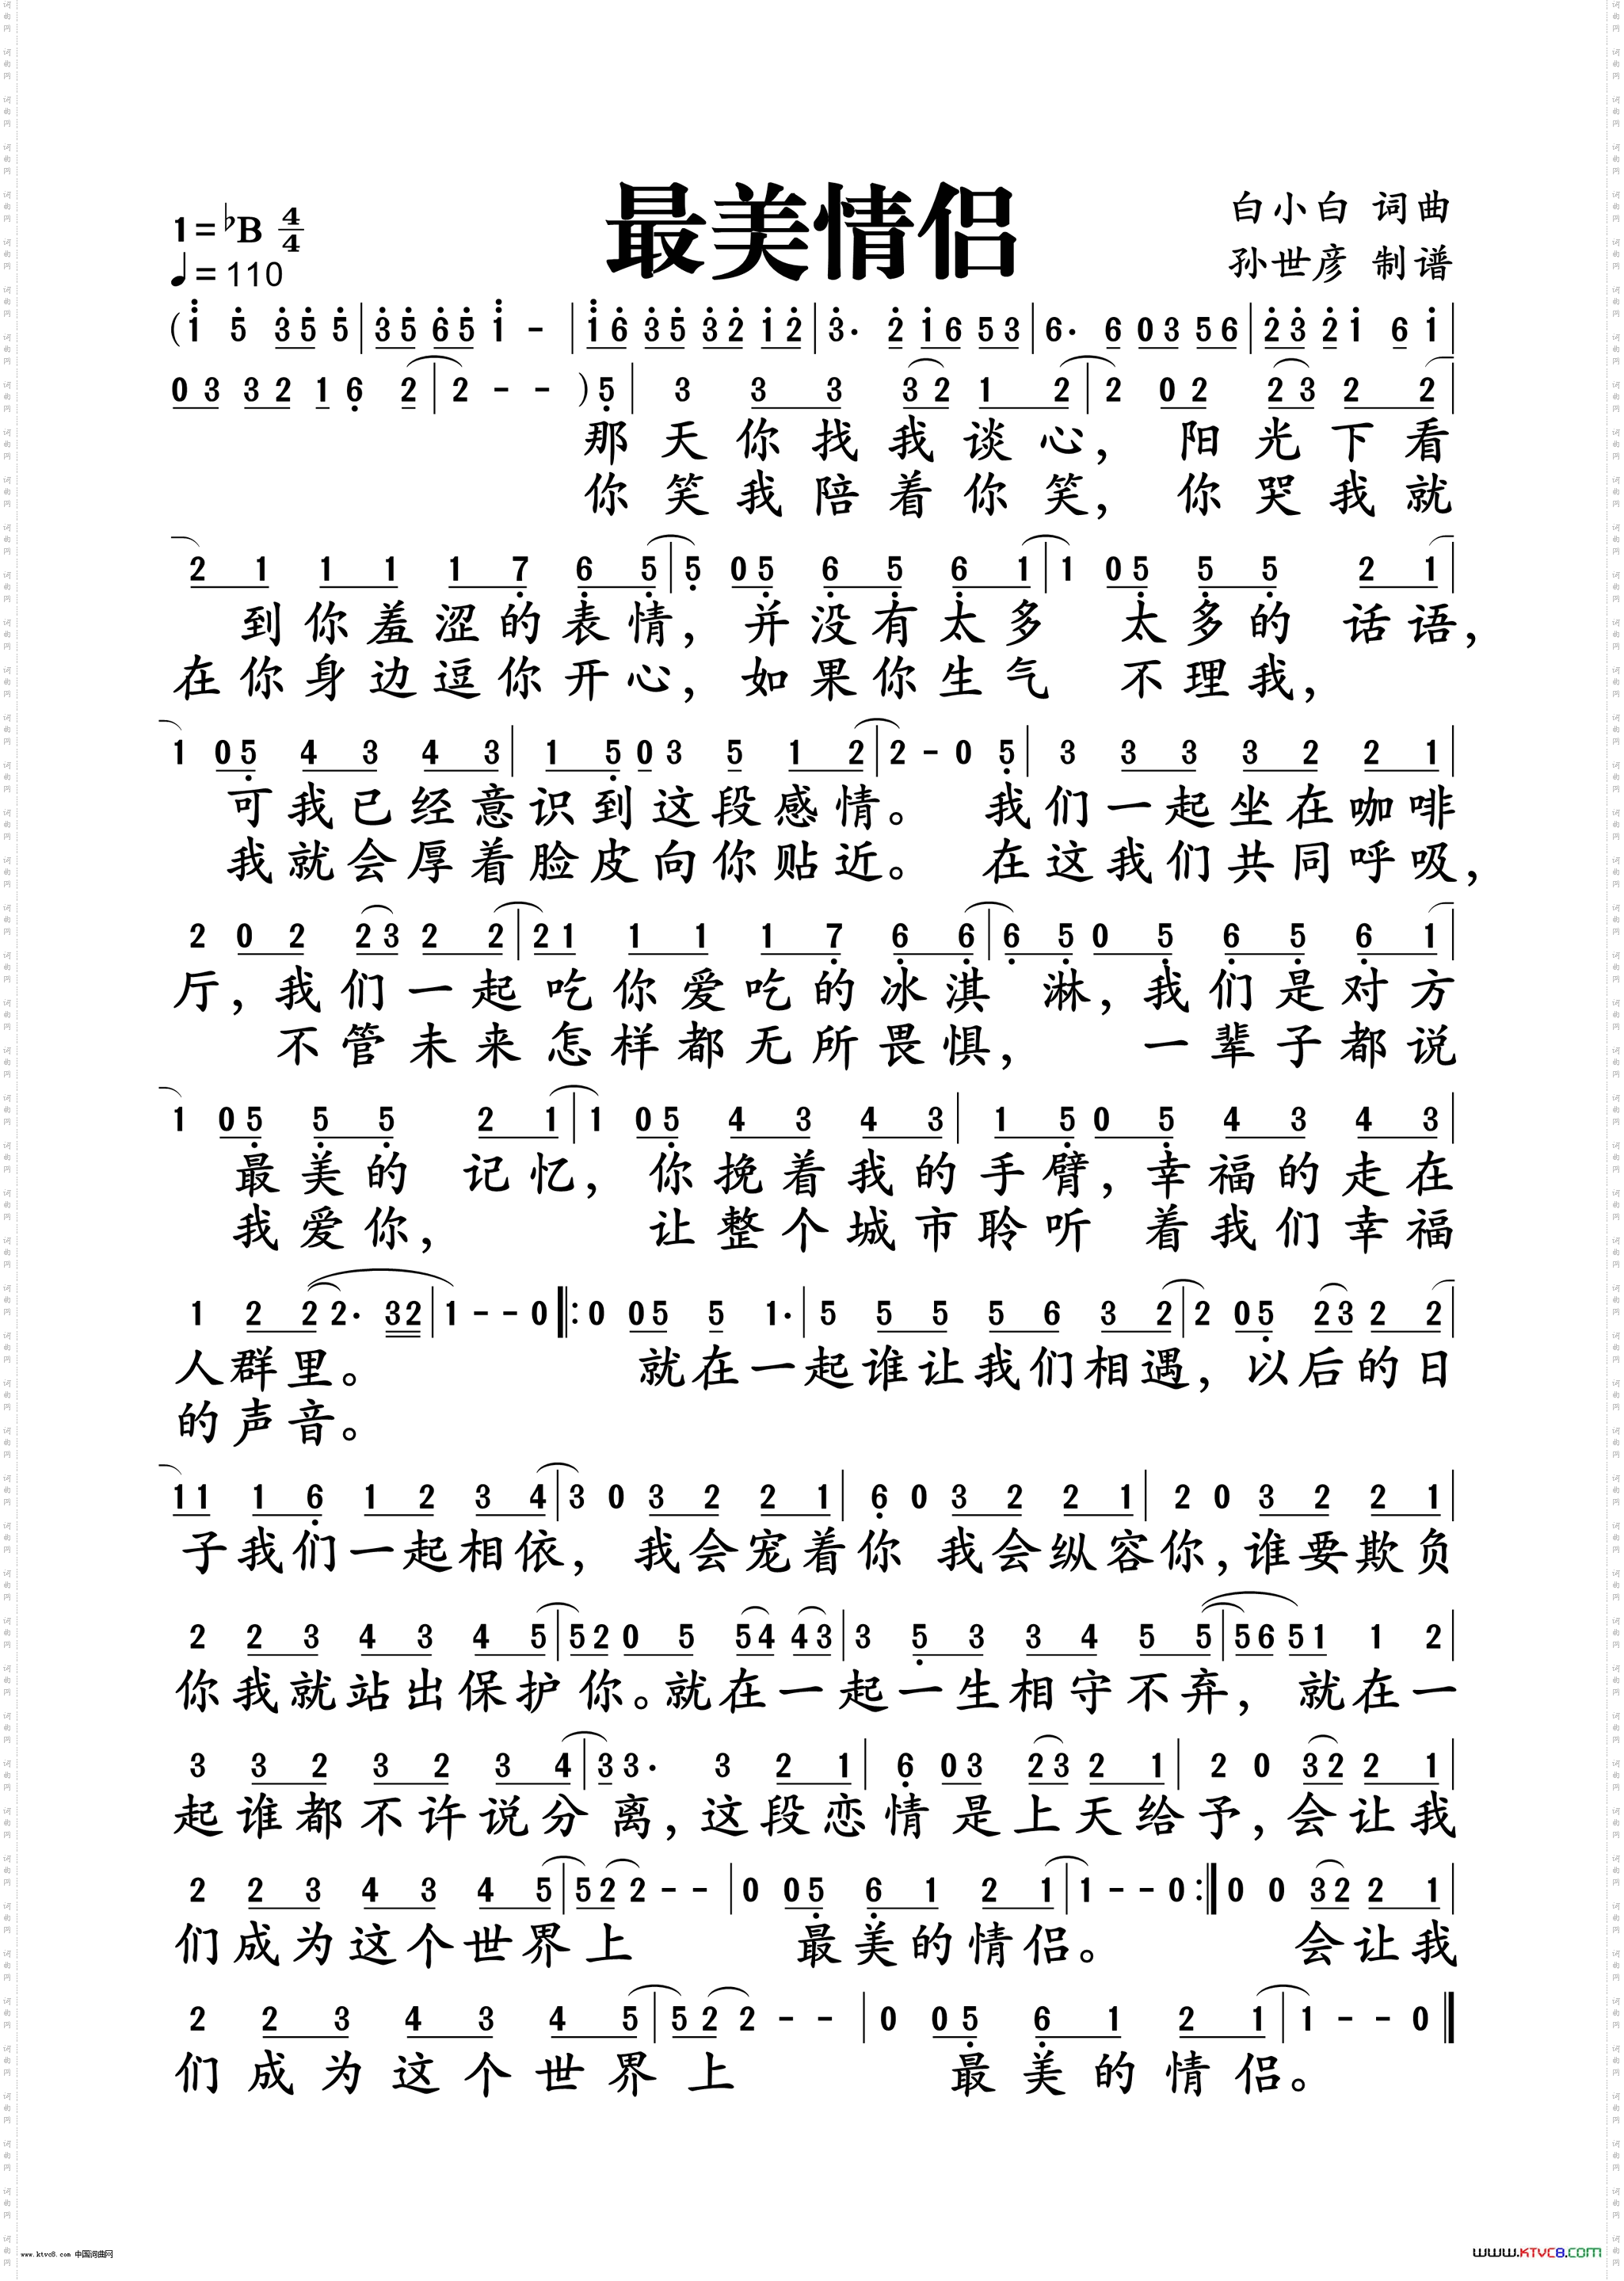 最美情侣
1=♭B 4/4
♩=110
白小白 词曲
孙世彦 制谱
(1 5 35 5|35 65 1 - |16 35 32 12|3. 2 16 53|6. 6 03 56|23 21 6 1|
03 32 1 6 2|2 - - )5|3 3 3 32 1 2|2 02 23 2 2|
那天你找我谈心，阳光下看
你笑我陪着你笑，你哭我就
2 1 1 1 1 7 6 5|5 05 6 5 6 1|1 05 5 5 2 1|
到你羞涩的表情，并没有太多 太多的 话语，
在你身边逗你开心，如果你生气 不理我，
1 05 4 3 4 3|1 5 0 3 5 1 2|2 - 0 5|3 3 3 3 2 2 1|
可我已经意识到这段感情。 我们一起坐在咖啡
我就会厚着脸皮向你贴近。 在这我们共同呼吸，
2 0 2 23 2 2|21 1 1 1 7 6 6|6 5 0 5 6 5 6 1|
厅，我们一起吃你爱吃的冰淇 淋，我们是对方
不管未来怎样都无所畏惧， 一辈子都说
1 05 5 5 2 1|1 05 4 3 4 3|1 5 0 5 4 3 4 3|
最美的 记忆， 你挽着我的手臂，幸福的走在
我爱你， 让整个城市聆听 着我们幸福
1 2 2 2. 32|1 - - 0‖:0 05 5 1.|5 5 5 5 6 3 2|2 05 23 2 2|
人群里。 就在一起谁让我们相遇，以后的日
的声音。
11 1 6 1 2 3 4|3 0 3 2 2 1|6 0 3 2 2 1|2 0 3 2 2 1|
子我们一起相依， 我会宠着你 我会纵容你，谁要欺负
2 2 3 4 3 4 5|52 0 5 54 43|3 5 3 3 4 5 5|56 51 1 2|
你我就站出保护你。就在一起一生相守不弃， 就在一
3 3 2 3 2 3 4|3 3. 3 2 1|6 03 23 2 1|2 0 32 2 1|
起谁都不许说分离，这段恋情是上天给予，会让我
2 2 3 4 3 4 5|52 2 - - |0 05 6 1 2 1|1 - - 0:‖0 0 32 2 1|
们成为这个世界上 最美的情侣。 会让我
2 2 3 4 3 4 5|52 2 - - |0 05 6 1 2 1|1 - - 0‖
们成为这个世界上 最美的情侣。
www.ktvc8.com 中国词曲网
WWW.KTVC8.COM